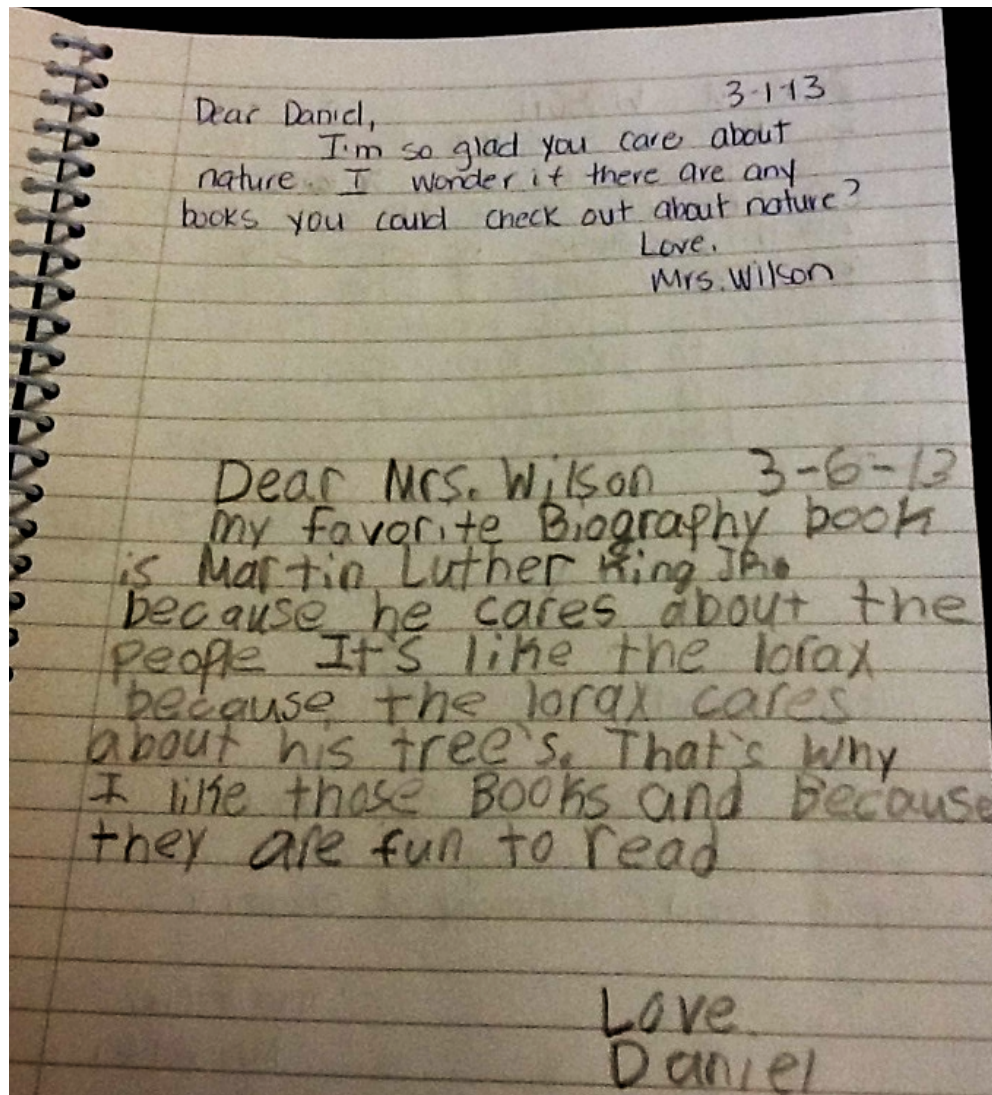 3-1-13
Dear Daniel,
I'm so glad you care about
nature. I wonder if there are any
books you could check out about nature?
Love,
Mrs. Wilson
Dear Mrs. Wilson 3-6-13
my favorite Biography book
is Martin Luther King JR.
because he cares about the
people It's like the lorax
because the lorax cares
about his tree's. That's why
I like those Books and Because
they are fun to read
Love
Daniel